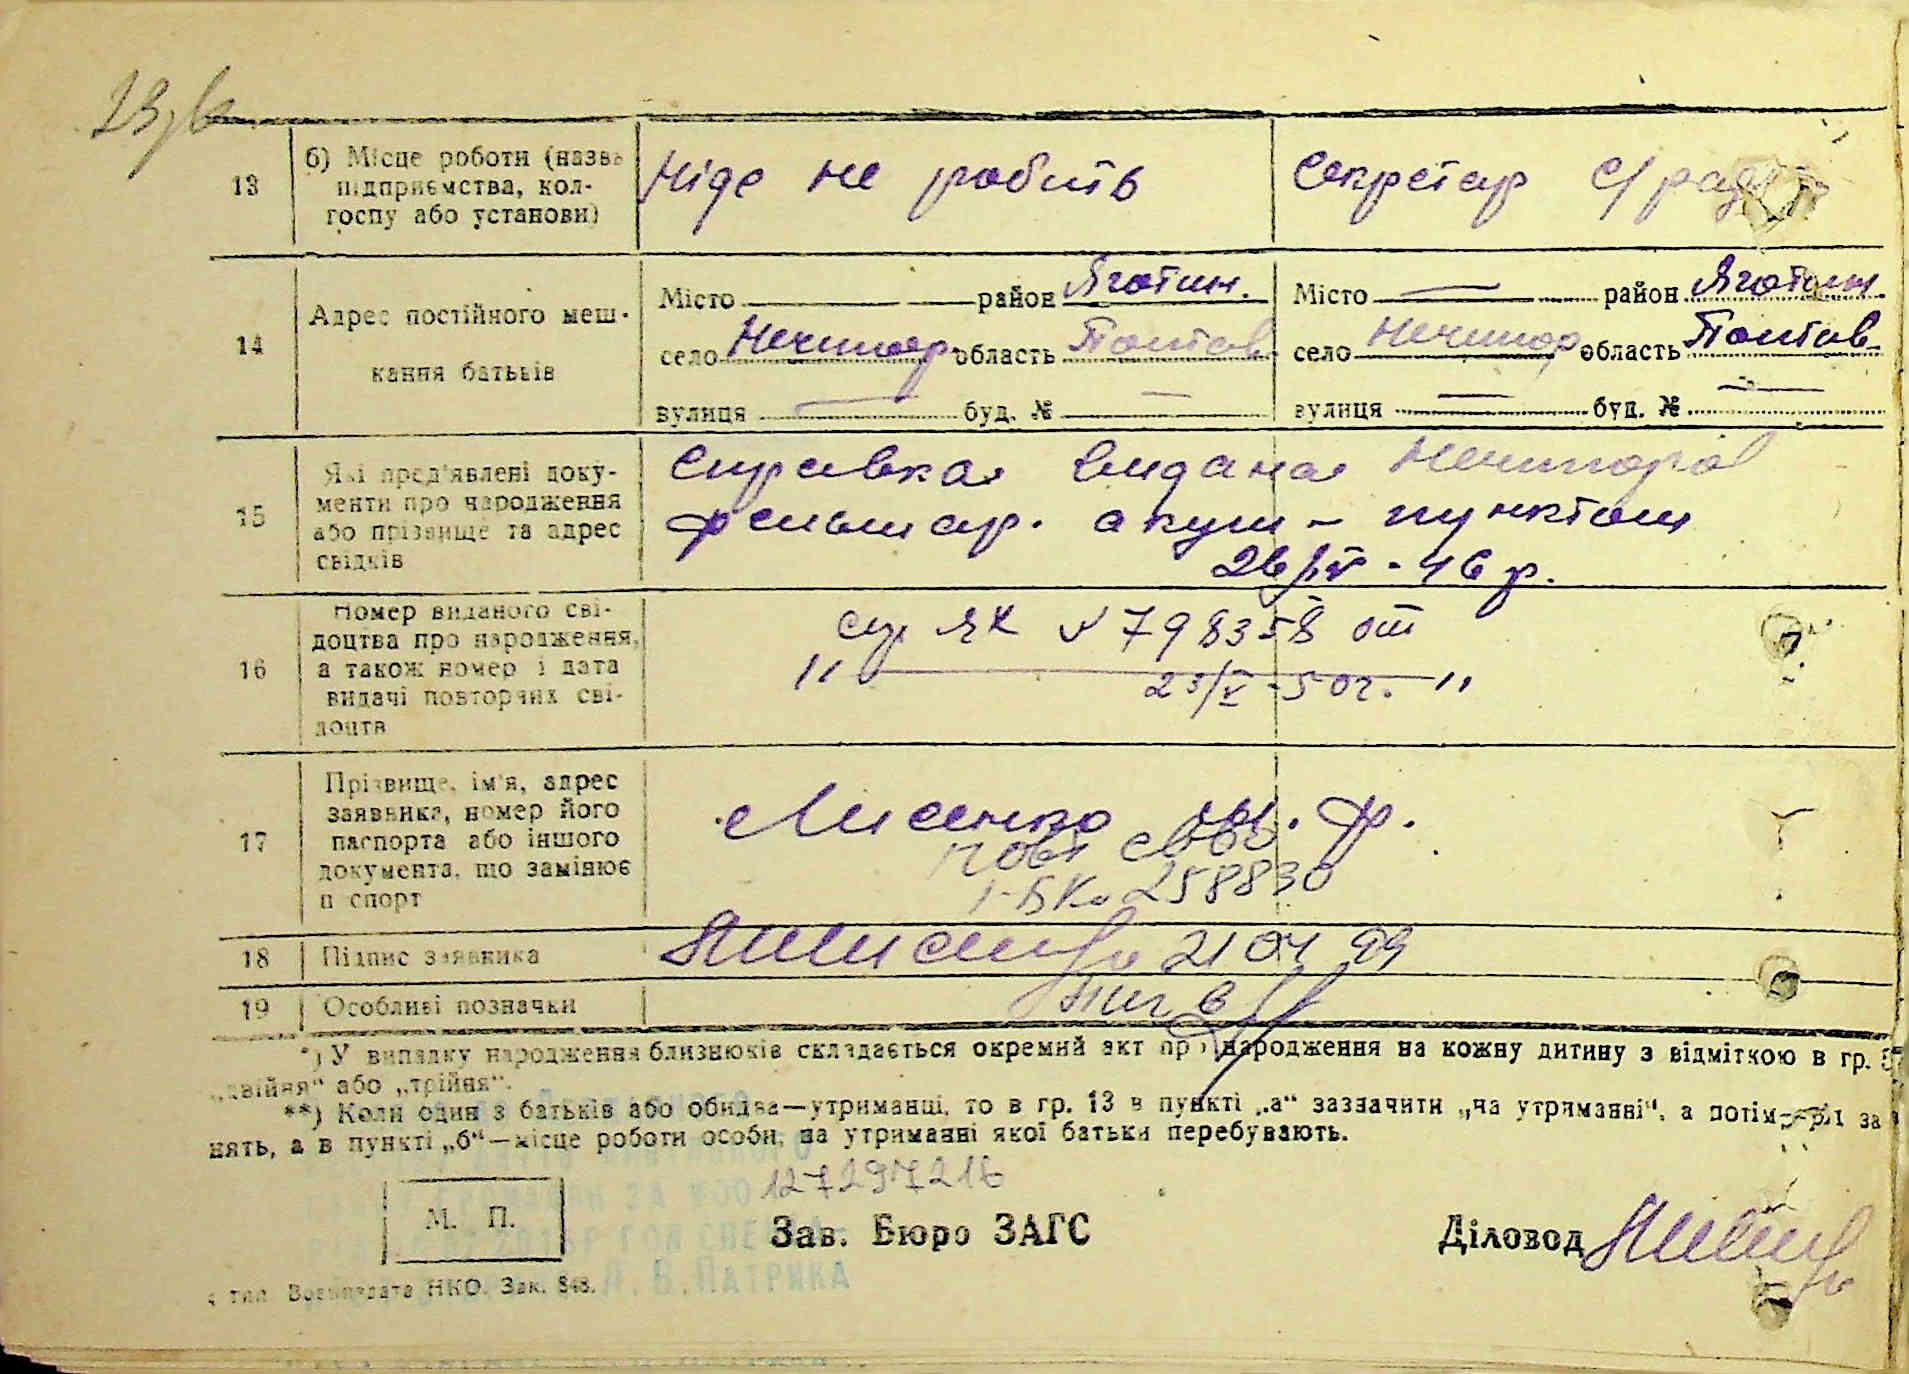 13
б) Місце роботи (назва
підприємства, кол-
госпу або установи)
Ніде не робить
Секретар с/ради
14
Адрес постійного меш-
кання батьків
Місто район Яготин.
село Нечипор. область Полтав.
вулиця буд. №
Місто район Яготин
село Нечипор область Полтав.
вулиця буд. №
15
Які пред'явлені доку-
менти про народження
або прізвище та адрес
свідків
Справка видана Нечипорів
фельшар. акуш- пунктом
26/IV-46 р.
16
Номер виданого сві-
доцтва про народження,
а також номер і дата
видачі повторних сві-
доцтв
ЯК № 798358 от
" 23/V-50 г. "
17
Прізвище, ім'я, адрес
заявника, номер його
паспорта або іншого
документа, що замінює
п спорт
Лисенко М. Ф.
повт свво
I-БК № 258830
18
Підпис заявника
21 04 99
19
Особливі позначки
*) У випадку народження близнюків складається окремий акт про народження на кожну дитину з відміткою в гр. 5
„двійня“ або „трійня“.
**) Коли один з батьків або обидва—утриманці, то в гр. 13 в пункті „а“ зазначити „на утриманні“, а потім рід за
нять, а в пункті „б“—місце роботи особи, на утриманні якої батьки перебувають.
127297216
М. П.
Зав. Бюро ЗАГС
Діловод
тип Воениздата НКО. Зак. 848.
Л. В. ПАТРИКА